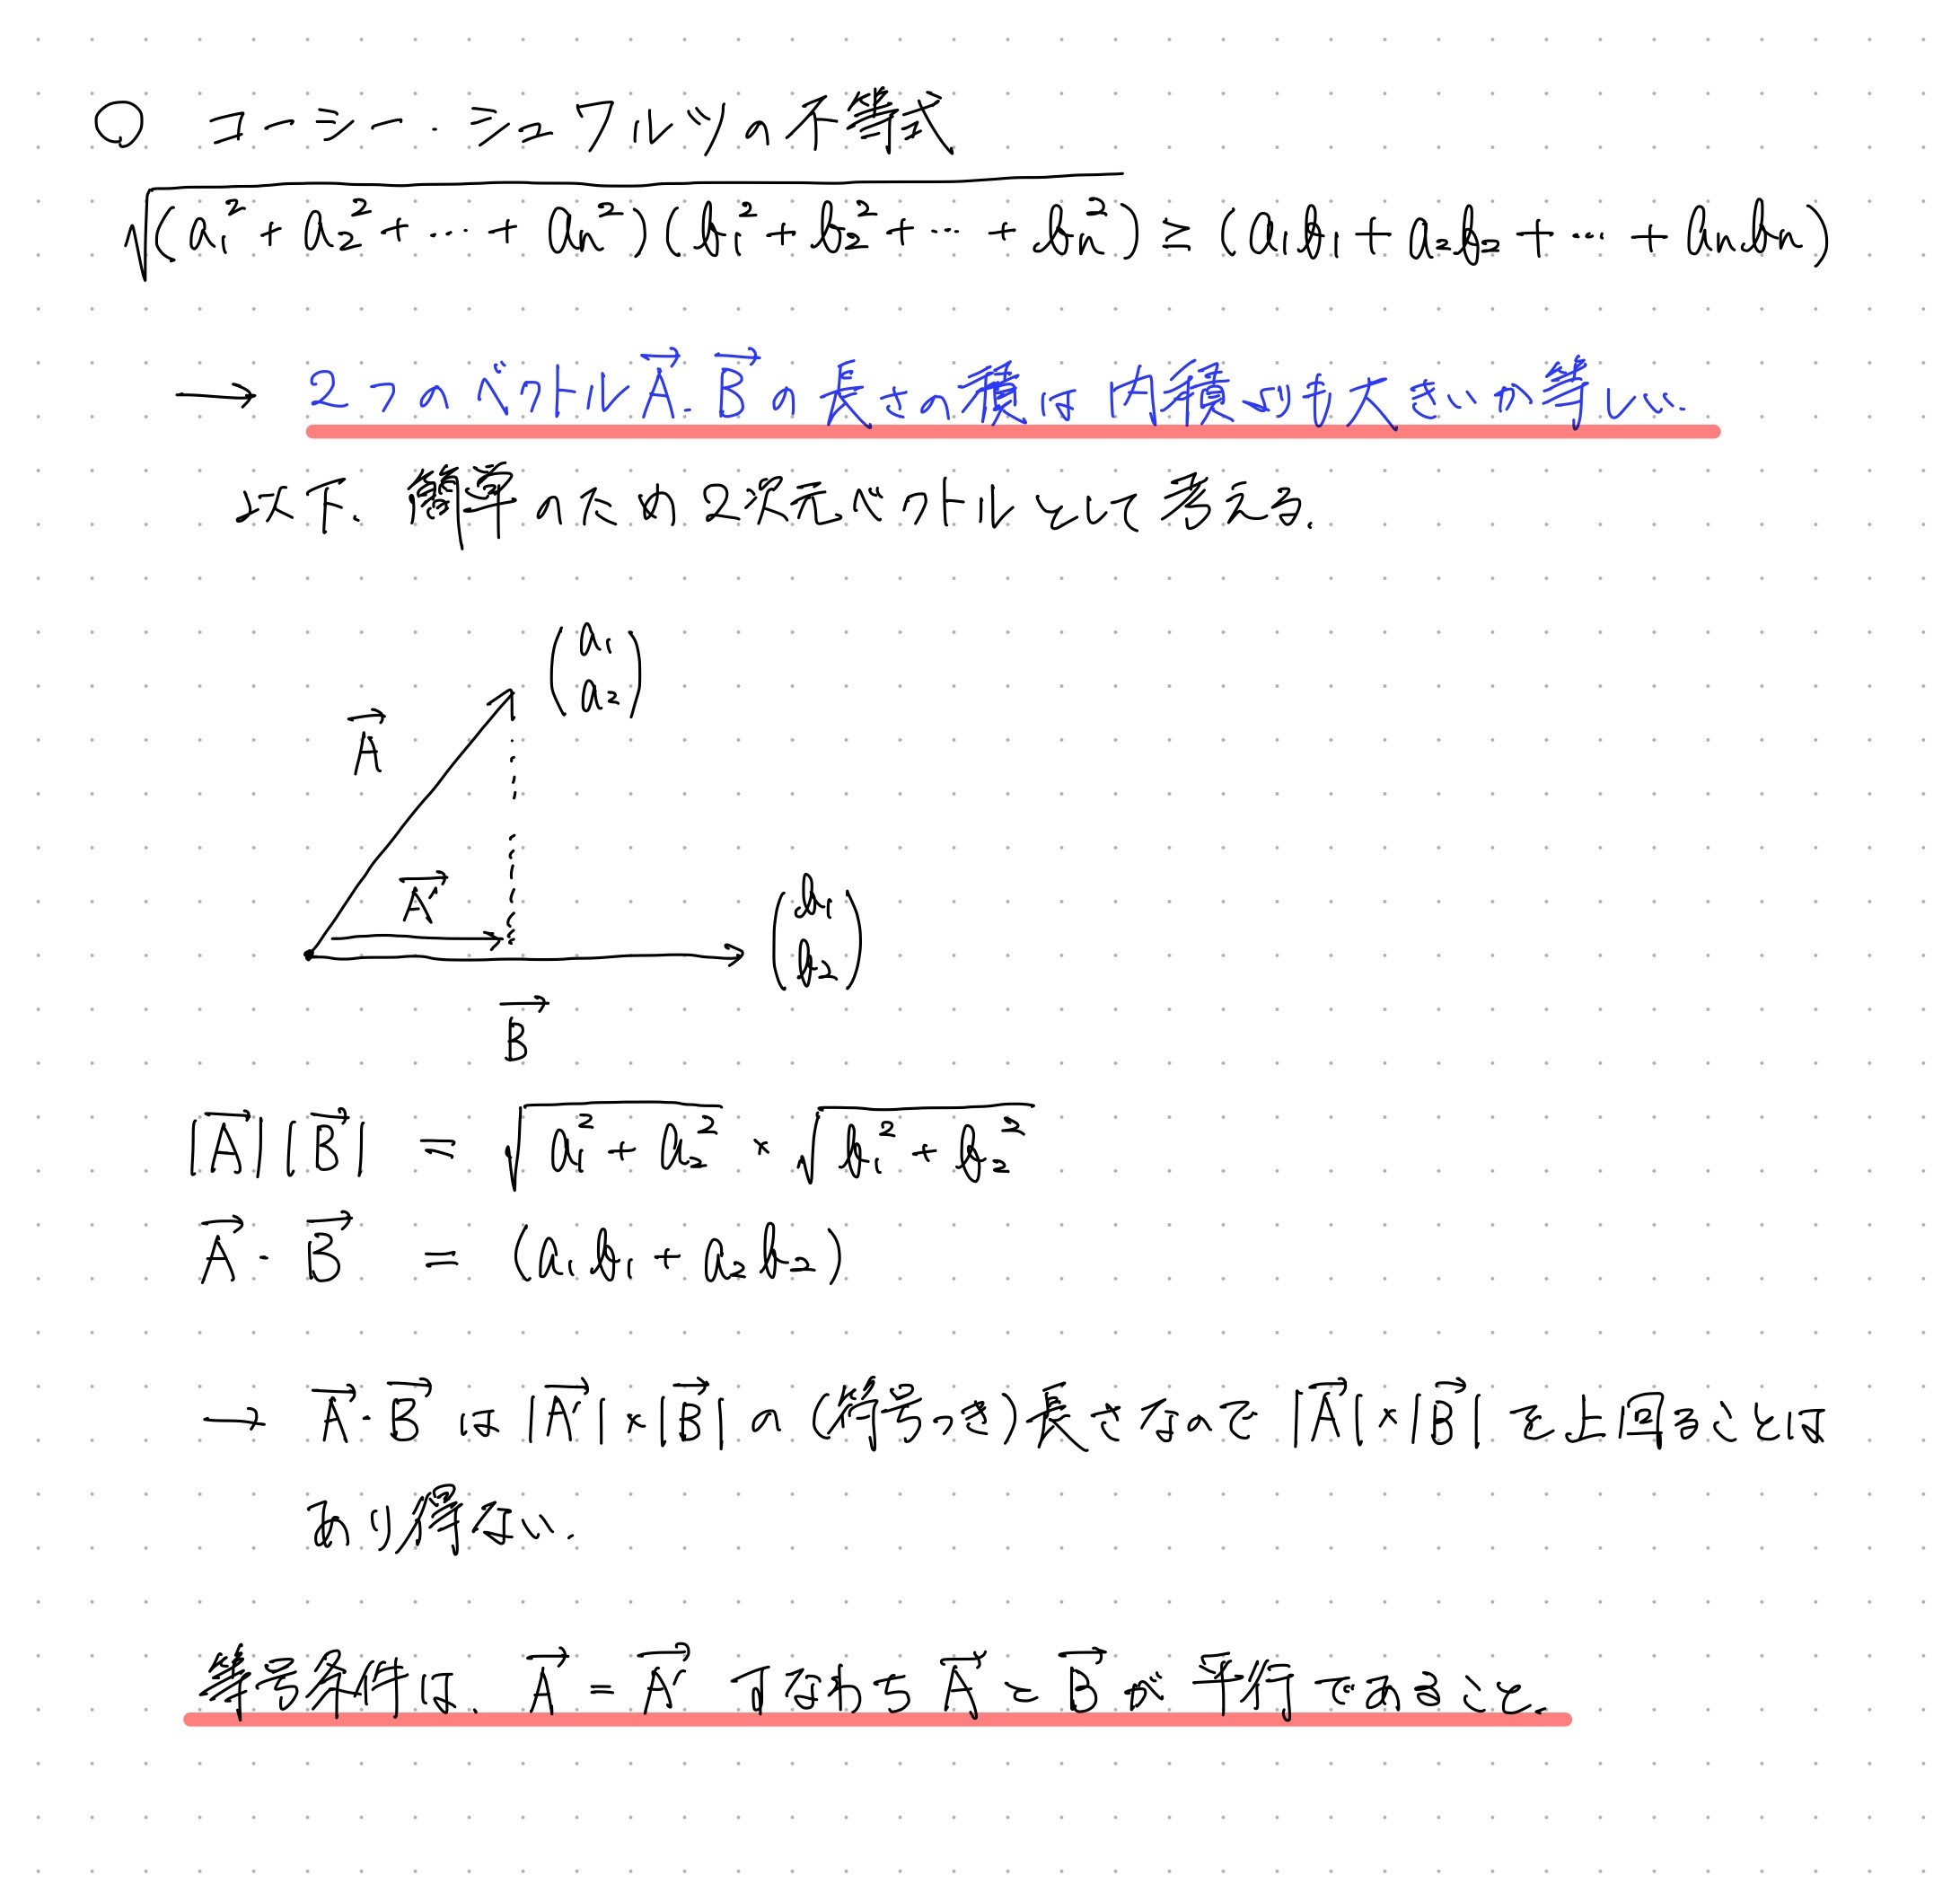 ○ コーシー・シュワルツの不等式
√(a₁²+a₂²+…+aₙ²)(b₁²+b₂²+…+bₙ²) ≥ (a₁b₁+a₂b₂+…+aₙbₙ)
→ 2つのベクトルA→、B→の長さの積は内積よりも大きいか等しい.
以下、簡単のため2次元ベクトルとして考える.
(a₁ a₂)
A→
A'→
(b₁ b₂)
B→
|A→||B→| = √a₁²+a₂² × √b₁²+b₂²
A→・B→ = (a₁b₁+a₂b₂)
→ A→・B→は|A'→|×|B→|の(符号つき)長さなので|A→|×|B→|を上回ることは
あり得ない.
等号条件は、A→=A'→ すなわちA→とB→が平行であること.